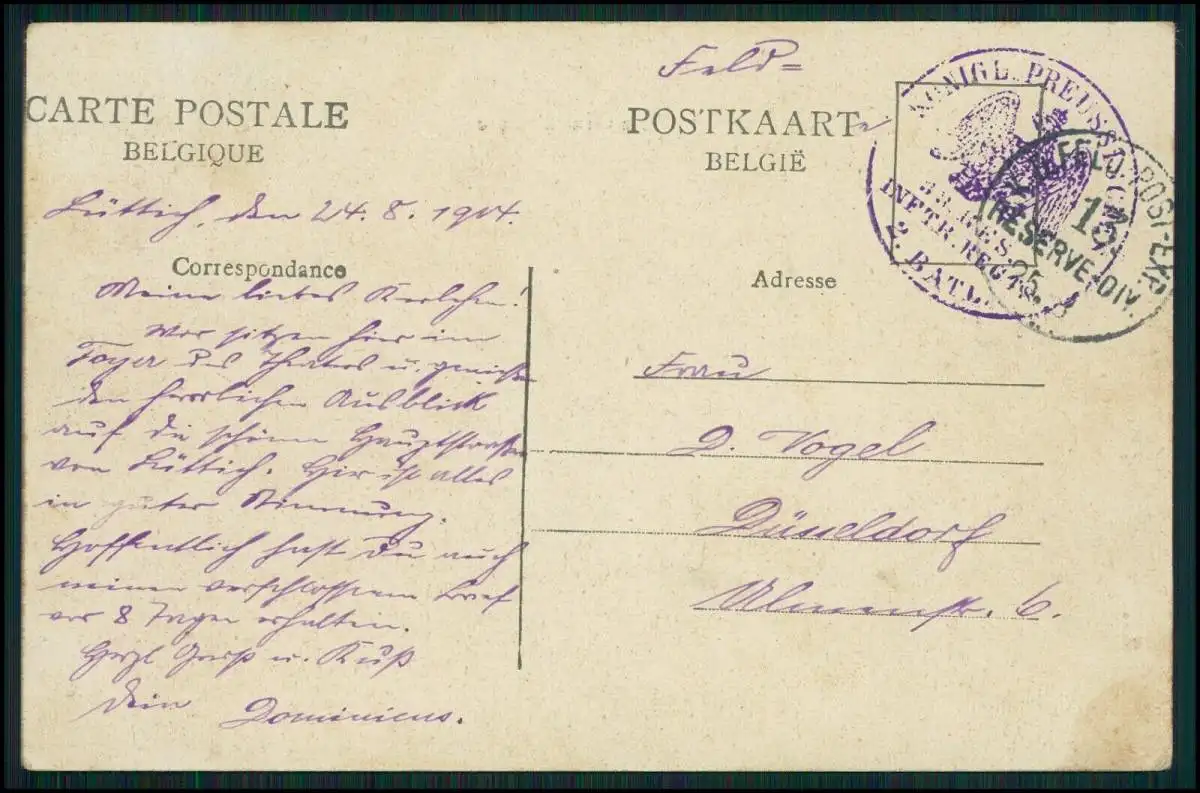 Feld=
CARTE POSTALE
BELGIQUE
POSTKAART
BELGIË
KÖNIGL. PREUSSISCHES
RES.
INFTR. REGT.
2. BATL.
K.D. FELD-POSTEXP.
13.
RESERVE-DIV.
25. 8
Lüttich, den 24.8.1914.
Correspondance
Adresse
Meine liebes Karlchen!
Wir sitzen hier im
Foyer des Theaters u. genießen
den herrlichen Ausblick
auf die schöne Hauptstraße
von Lüttich. Hir ist alles
in guter Stimmung.
Hoffentlich hast Du auch
meinen verschlossenen Brief
vor 8 Tagen erhalten.
Herzl Gruß u. Kuß
Dein Dominicus.
Frau
D. Vogel
Düsseldorf
Ulmenstr. 6.